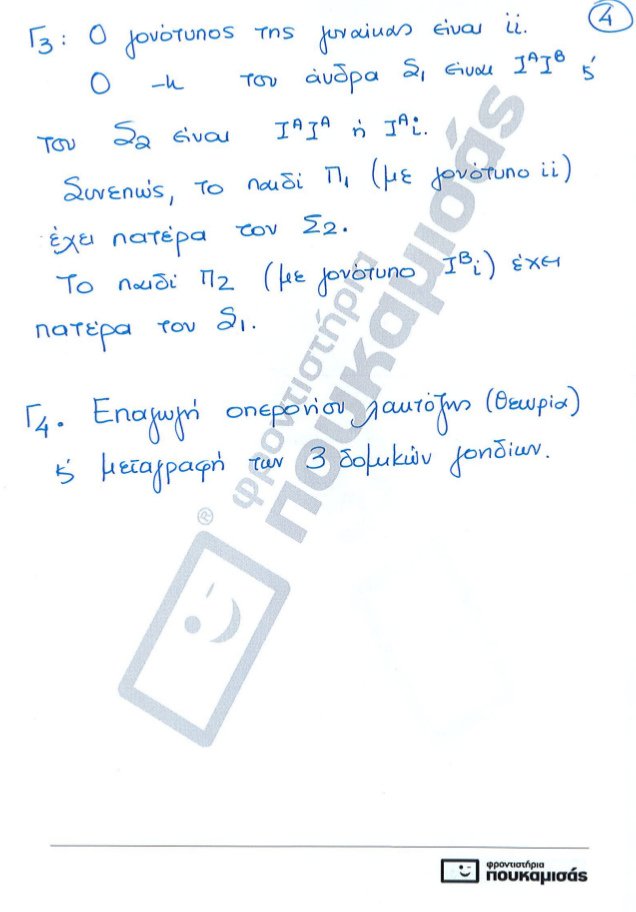 4
Γ3: Ο γονότυπος της γυναίκας είναι ii.
Ο -//- του άνδρα Σ1 είναι IᴬIᴮ κ'
του Σ2 είναι IᴬIᴬ ή Iᴬi.
Συνεπώς, το παιδί Π1 (με γονότυπο ii)
έχει πατέρα τον Σ2.
Το παιδί Π2 (με γονότυπο Iᴮi) έχει
πατέρα τον Σ1.
Γ4. Επαγωγή οπερονίου λακτόζης (θεωρία)
κ' μεταγραφή των 3 δομικών γονιδίων.
® φροντιστήρια
πουκαμισάς
φροντιστήρια
πουκαμισάς